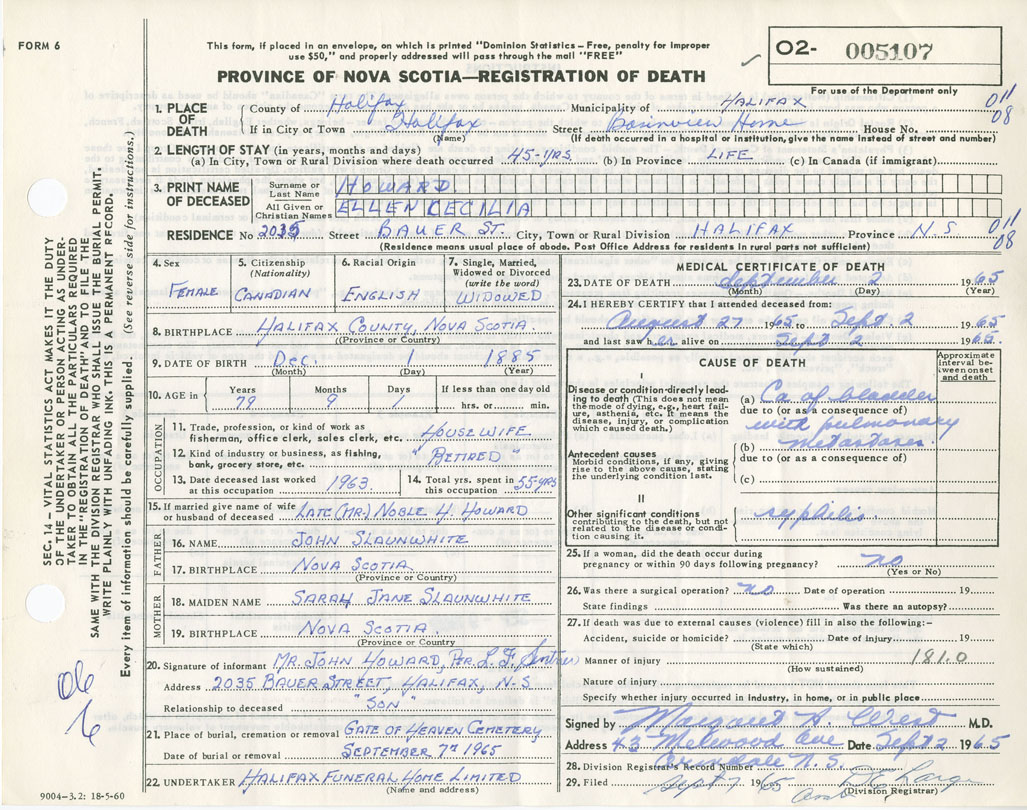 FORM 6
This form, if placed in an envelope, on which is printed "Dominion Statistics – Free, penalty for improper
use $50," and properly addressed will pass through the mail "FREE"
O2- 005107
For use of the Department only
PROVINCE OF NOVA SCOTIA—REGISTRATION OF DEATH
1. PLACE OF DEATH
County of Halifax Municipality of HALIFAX 011
If in City or Town Halifax Street Basinview Home House No. 08
(Name) (If death occurred in a hospital or institution, give the name instead of street and number)
2. LENGTH OF STAY (in years, months and days)
(a) In City, Town or Rural Division where death occurred 45-YRS. (b) In Province LIFE (c) In Canada (if immigrant)
3. PRINT NAME OF DECEASED
Surname or Last Name HOWARD
All Given or Christian Names ELLEN CECILIA
RESIDENCE No 2035 Street BAUER ST. City, Town or Rural Division HALIFAX Province N.S 011
08
(Residence means usual place of abode. Post Office Address for residents in rural parts not sufficient)
4. Sex
FEMALE
5. Citizenship
(Nationality)
CANADIAN
6. Racial Origin
ENGLISH
7. Single, Married,
Widowed or Divorced
(write the word)
WIDOWED
8. BIRTHPLACE HALIFAX COUNTY, NOVA SCOTIA.
(Province or Country)
9. DATE OF BIRTH Dec. 1 1885
(Month) (Day) (Year)
10. AGE in
Years Months Days If less than one day old
79 9 1 hrs. or min.
OCCUPATION
11. Trade, profession, or kind of work as
fisherman, office clerk, sales clerk, etc. HOUSEWIFE
12. Kind of industry or business, as fishing,
bank, grocery store, etc. "RETIRED"
13. Date deceased last worked
at this occupation 1963.
14. Total yrs. spent in
this occupation 55-YRS
15. If married give name of wife
or husband of deceased LATE (MR.) NOBLE H. HOWARD
FATHER
16. NAME JOHN SLAUNWHITE
17. BIRTHPLACE NOVA SCOTIA
(Province or Country)
MOTHER
18. MAIDEN NAME SARAH JANE SLAUNWHITE
19. BIRTHPLACE NOVA SCOTIA.
(Province or Country)
20. Signature of informant MR. JOHN HOWARD, PER. L. F.
Address 2035 BAUER STREET, HALIFAX, N-S
Relationship to deceased "SON"
21. Place of burial, cremation or removal GATE OF HEAVEN CEMETERY
Date of burial or removal SEPTEMBER 7TH 1965
22. UNDERTAKER HALIFAX FUNERAL HOME LIMITED
(Name and address)
9004-3.2: 18-5-60
MEDICAL CERTIFICATE OF DEATH
23. DATE OF DEATH September 2 1965
(Month) (Day) (Year)
24. I HEREBY CERTIFY that I attended deceased from:
August 27 1965 to Sept. 2 1965
and last saw her alive on Sept 2 1965.
CAUSE OF DEATH
Approximate interval between onset and death
I
Disease or condition directly leading
to death (This does not mean
the mode of dying, e.g., heart failure,
asthenia, etc. It means the
disease, injury, or complication
which caused death)
(a) Ca. of bladder
due to (or as a consequence of)
with pulmonary
(b) metastases.
Antecedent causes
Morbid conditions, if any, giving
rise to the above cause, stating
the underlying condition last.
due to (or as a consequence of)
(c)
II
Other significant conditions
contributing to the death, but not
related to the disease or condition
causing it.
syphilis.
25. If a woman, did the death occur during
pregnancy or within 90 days following pregnancy? no
(Yes or No)
26. Was there a surgical operation? no. Date of operation 19
State findings Was there an autopsy?
27. If death was due to external causes (violence) fill in also the following:-
Accident, suicide or homicide? Date of injury 19
(State which)
Manner of injury 181.0
(How sustained)
Nature of injury
Specify whether injury occurred in industry, in home, or in public place
Signed by Margaret A. West M.D.
Address 43 Melwood Ave Date Sept 2 1965
Armdale N.S.
28. Division Registrar's Record Number
29. Filed Sept 7 1965 Large
(Division Registrar)
SEC. 14 – VITAL STATISTICS ACT MAKES IT THE DUTY
OF THE UNDERTAKER OR PERSON ACTING AS UNDERTAKER
TO OBTAIN ALL THE PARTICULARS REQUIRED
IN THE "REGISTRATION OF DEATH" AND TO FILE THE
SAME WITH THE DIVISION REGISTRAR WHO SHALL ISSUE THE BURIAL PERMIT.
WRITE PLAINLY WITH UNFADING INK. THIS IS A PERMANENT RECORD.
Every item of information should be carefully supplied. (See reverse side for instructions.)